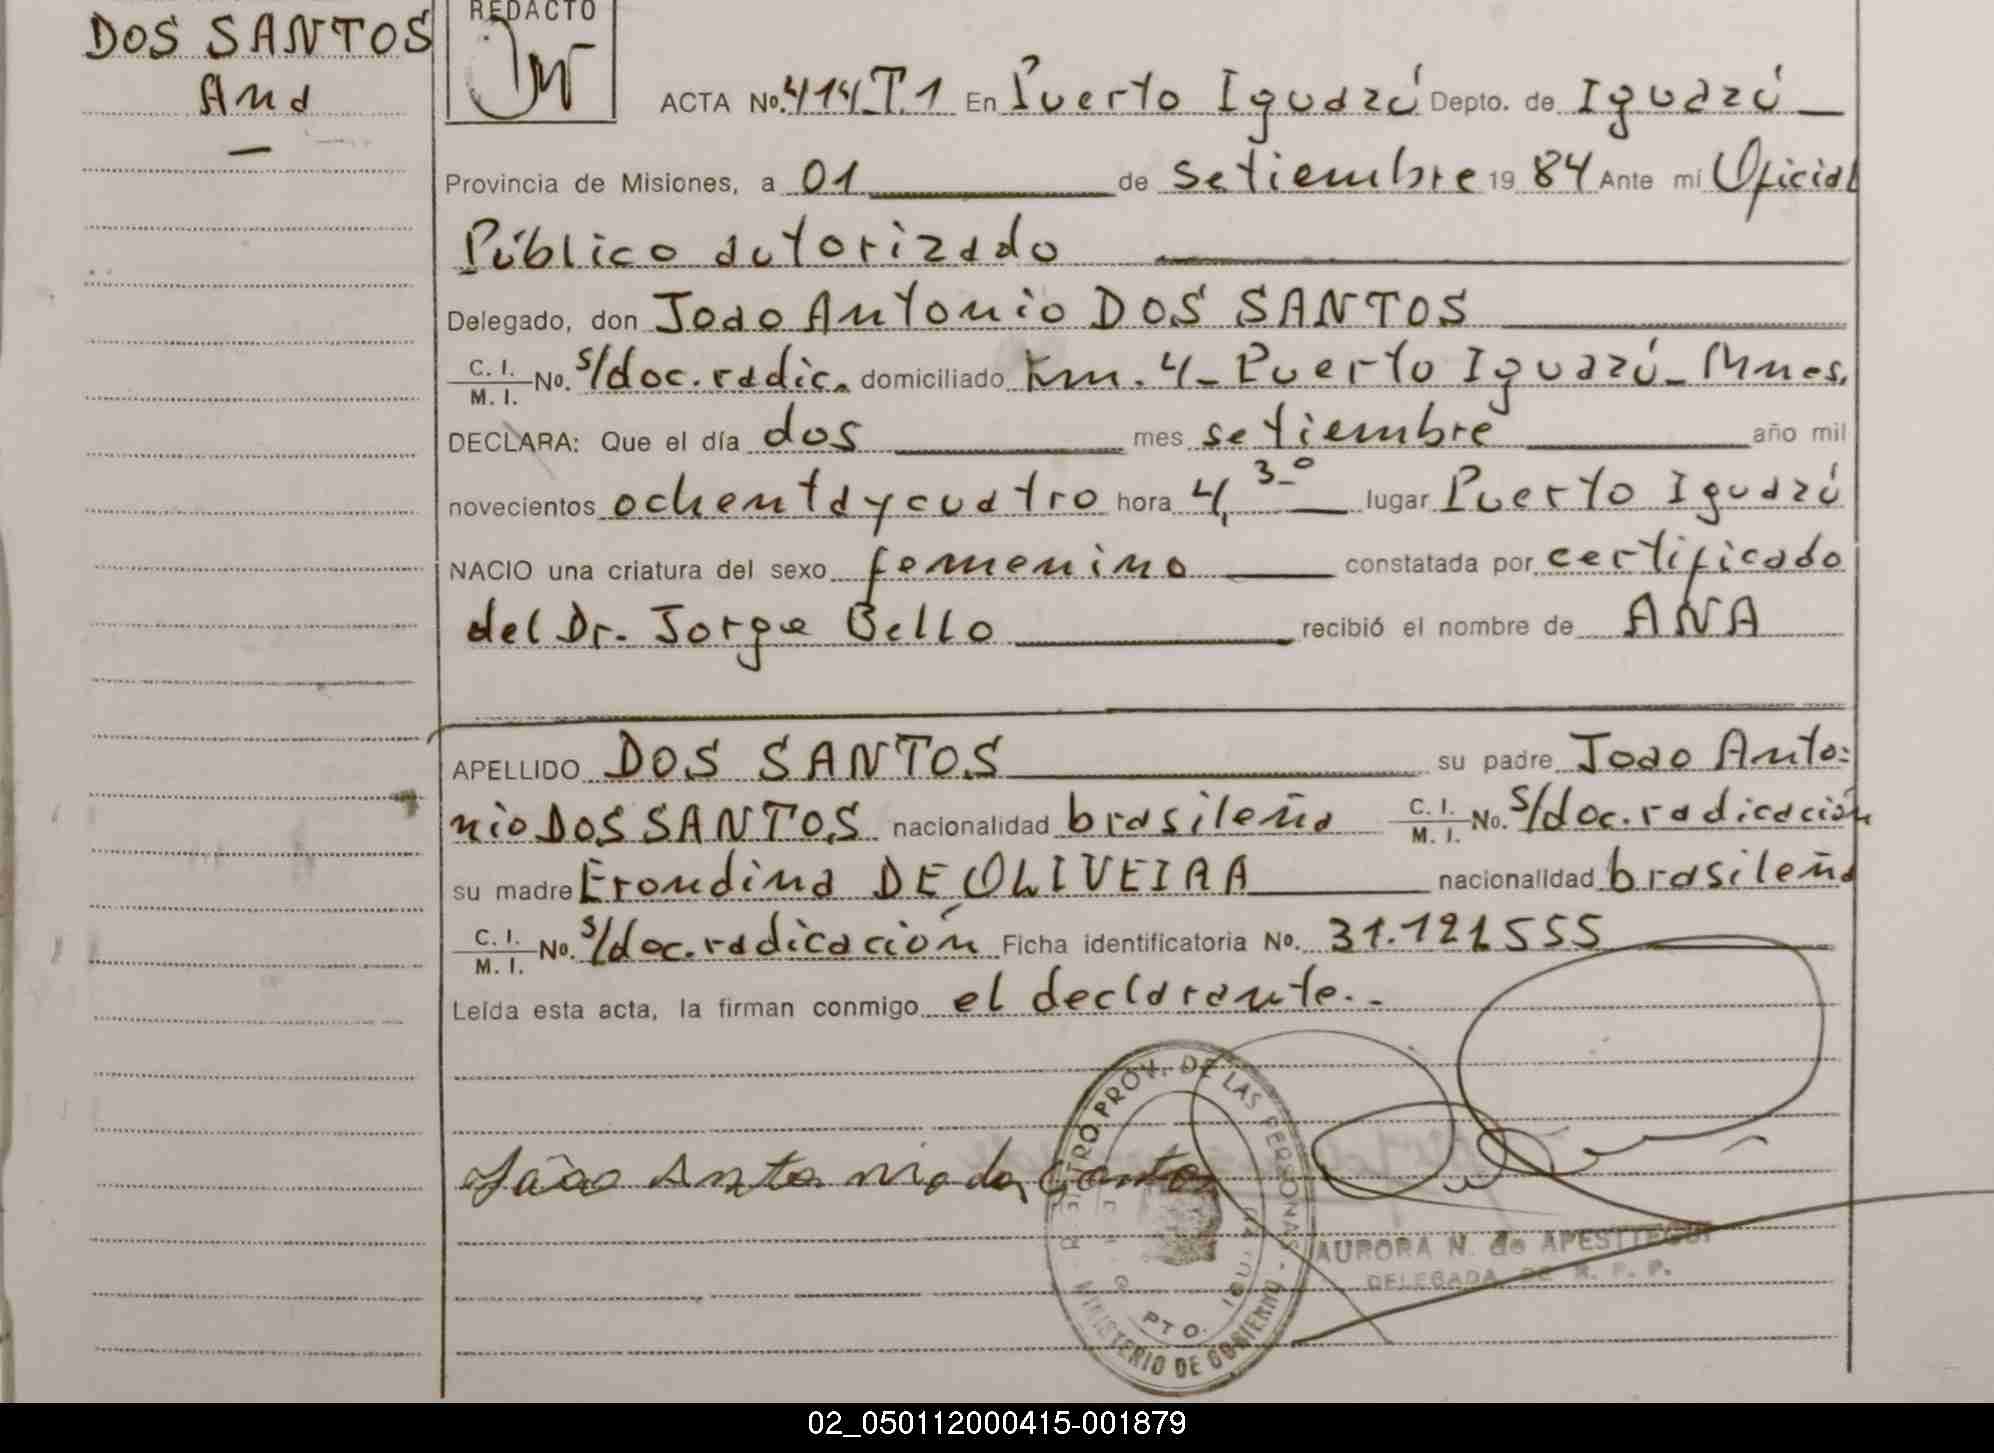 DOS SANTOS
Ana
REDACTO
ACTA No. 414 T.1 En Puerto Iguazú Depto. de Iguazú
Provincia de Misiones, a 01 de setiembre 19 84 Ante mí Oficial
Público autorizado
Delegado, don Joao Antonio DOS SANTOS
C. I. / M. I. No. s/doc. radic. domiciliado Km. 4 - Puerto Iguazú - Mnes.
DECLARA: Que el día dos mes setiembre año mil
novecientos ochenta y cuatro hora 4,30 lugar Puerto Iguazú
NACIO una criatura del sexo femenino constatada por certificado
del Dr. Jorge Bello recibió el nombre de ANA
APELLIDO DOS SANTOS su padre Joao Anto=
nio DOS SANTOS nacionalidad brasileña C. I. / M. I. No. s/doc. radicación
su madre Erondina DE OLIVEIRA nacionalidad brasileña
C. I. / M. I. No. s/doc. radicación Ficha identificatoria No. 31.121555
Leída esta acta, la firman conmigo el declarante.-
João Antonio dos Santos
PROV. DE LAS PERSONAS
PTO.
MINISTERIO DE GOBIERNO
AURORA N. de APESTEGUI
DELEGADA DE R. P. P.
02_050112000415-001879